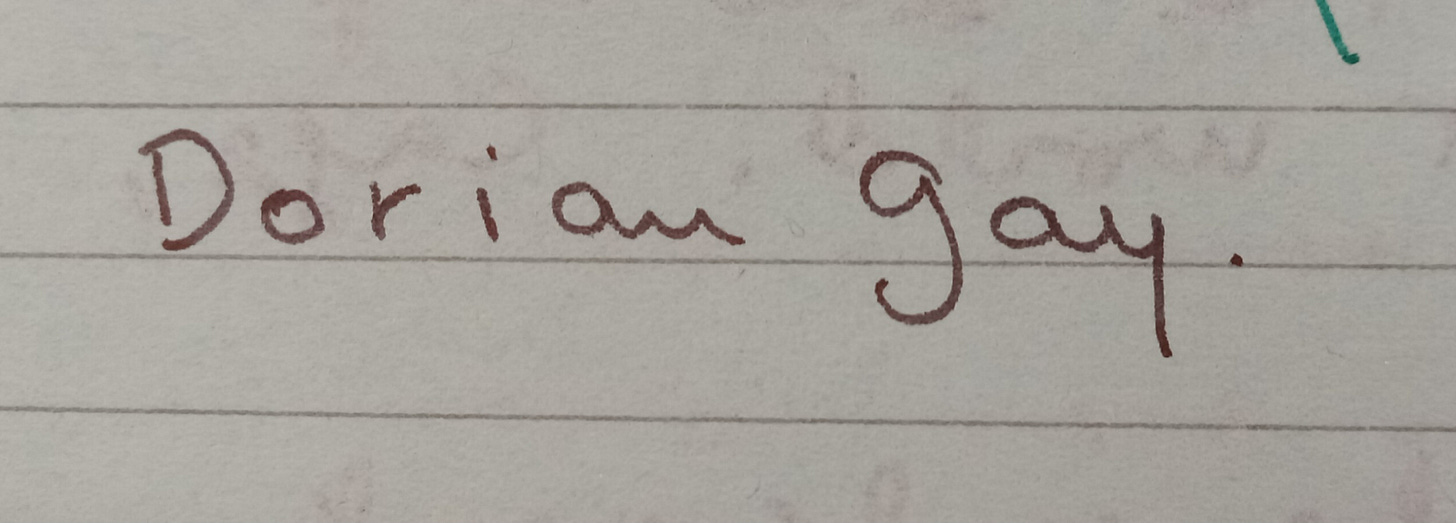 Dorian gay.